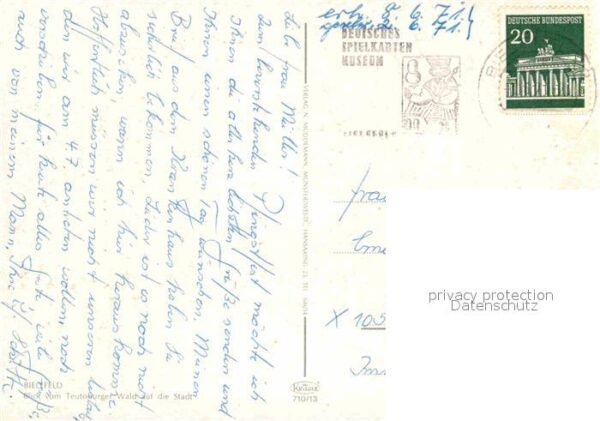 erh. 8. 6. 71.
6. 71.
DEUTSCHES
SPIELKARTEN
MUSEUM
DEUTSCHE BUNDESPOST
20
Liebe Frau Müller!
Zum bevorstehenden Pfingstfest möchte ich
Ihnen die allerherzlichsten Grüße senden und
Ihnen einen schönen Tag wünschen. Meinen
Brief aus dem Krankenhaus haben Sie
sicherlich bekommen, Leider ist es noch nicht
abzusehen, wann ich hier herauskomme.
Hoffentlich müssen wir nicht unseren Urlaub
den wir am 4.7. antreten wollen, noch
verschieben. Für heute alles Gute, viele Grüße,
auch von meinem Mann, Ihre
BIELEFELD
Blick vom Teutoburger Wald auf die Stadt
Krüger
710/13
Frau
X 105
privacy protection
Datenschutz